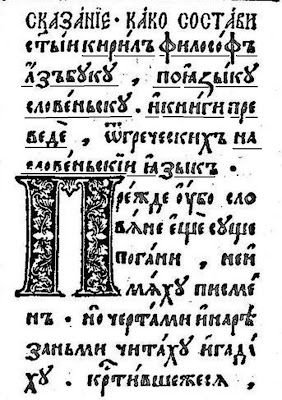 СКАЗАНЇЕ · КАКО СОСТАВИ
СТ҃ЫИ КИРИЛЪ ФИЛОСОФЪ
АЗЪБꙊКꙊ , ПОꙖЗЫКꙊ
СЛОВЕНЬСКꙊ · ИКНИГИ ПРЕ
ВЕДЕ , ѾГРЕЧЕСКИХЪ НА
СЛОВЕНЬСКЇИ ꙖЗЫКЪ ·
Пре́жде ᲂу҆́бо сло
вѧ́не є҆щѐ сꙋще
пога́ни , неи
мѧ́хꙋ писме
н̾ · но черта́ми инарѣ́
заньми чита́хꙋ игадаⷯ
хꙋ · крⷭ҇тившежесѧ ,